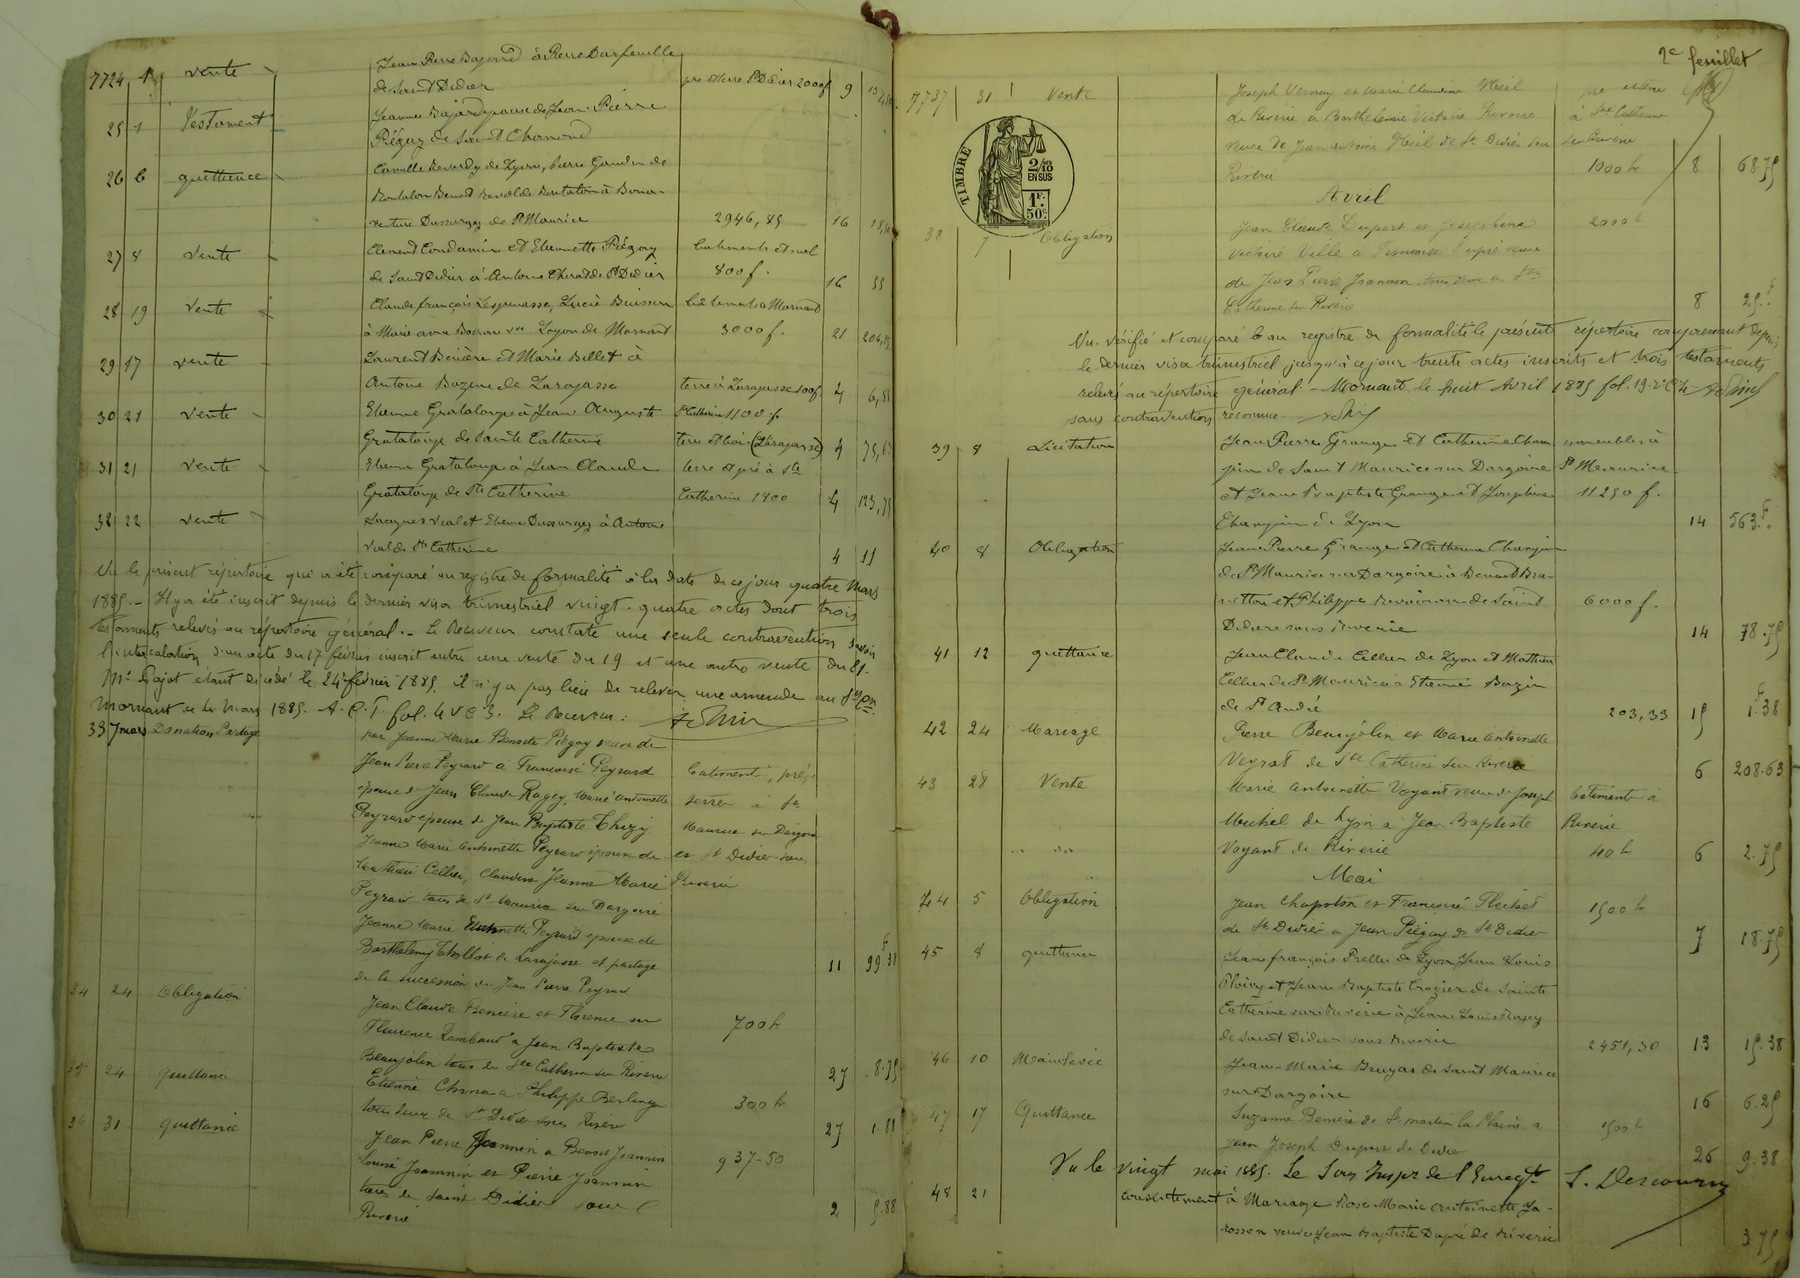 7724 1 vente Jean Pierre Bajard à Pierre Darfeuille
de Saint Didier pre et terre St Didier 2000f 9
25 1 Testament Jeanne Bajard épouse de Jean Pierre
Piégay de Saint Chamond
26 6 quittance Camille Reverdy de Lyon, Pierre Gaudin de
venture Dussurgey de St Maurice 2946,85 16
27 8 vente Clément Condamin et Etiennette Piégay batiments et sol
de Saint Didier à Antoine Chirat de St Didier 800f. 16 55
28 19 vente Claude françois Lespinasse, Lucie Buisson batiments à Mornant
à Marie anne Bocara vve Loyon de Mornant 3000f. 21
29 17 vente Laurent Benière et Marie Billet à
Antoine Bazin de Larajasse terre à Larajasse 100f. 4 6,88
30 21 vente Etienne Grataloup à Jean Auguste St Catherine 1100f
Grataloup de Sainte Catherine terre et bois (Larajasse) 4
31 21 vente Etienne Grataloup à Jean Claude terre et pré à Ste
Grataloup de Ste Catherine Catherine 1900 4 123,75
32 22 vente Jacques Vial et Etienne Dussurgey à Antoine
Vial de Ste Catherine 4 11
Vu le présent répertoire qui a été comparé au registre de formalité à la date de ce jour quatre Mars
1885. - Il y a été inscrit depuis le dernier visa trimestriel vingt-quatre actes dont trois
testaments relevés au répertoire général. - Le Receveur constate une seule contravention savoir
l'intercalation d'un acte du 17 février inscrit entre une vente du 19 et une autre vente du 21.
Me Pajot étant décédé le 24 février 1885, il n'y a pas lieu de relever une amende
Mornant ce 4 Mars 1885. Le Receveur:
33 7 mars Donation Partage par Jeanne Marie Benoite Piégay veuve de
Jean Pierre Peyrard à Françoise Peyrard batiments, prés
épouse de Jean Claude Ragey, Marie Antoinette terres à St
Peyrard épouse de Jean Baptiste Thizy Maurice sur Dargoire
Jeanne Marie Antoinette Peyrard épouse de et St Didier sous
Mathieu Cellier, Claudine Jeanne Marie Riverie
Peyrard tous de St Maurice sur Dargoire
Jeanne Marie Peyrard épouse de
Barthélemy Thollot de Larajasse et partage 11 99.31
de la succession de Jean Pierre Peyrard
34 24 Obligation Jean Claude Benière et Florence ou
Fleurence Rambaud à Jean Baptiste 700f
Beaujolin tous de Ste Catherine sur Riverie 27 8.75
35 24 quittance Etienne Charra à Philippe Berlinge 300f
tous deux de St Didier sous Riverie 27 1.88
36 31 quittance Jean Pierre Joannin à Benoit Joannin
Louise Joannin et Pierre Joannin 937-50
tous de Saint Didier sous 2 5.88
Riverie
2e feuillet
7737 31 Vente Joseph Verney et Marie Claudine Theil
de Riverie à Barthélemie Victoire Rivoire à Ste Catherine
veuve de Jean Antoine Theil de St Didier sous sur Riverie
Riverie 1000f 8 68.75
TIMBRE
2/10
EN SUS
1F.
50c
Avril
38 7 Obligation Jean Claude Duport et Josephine 2000f
Victoire Ville à Françoise Dupré veuve
de Jean Pierre Joannon tous deux à Ste
Catherine sur Riverie 8 25.F
Vu, vérifié et comparé au registre de formalité le présent répertoire comprenant depuis
le dernier visa trimestriel jusqu'à ce jour trente actes inscrits et trois testaments
relevés au répertoire général - Mornant le huit Avril 1885 fol. 19
sans contravention reconnue.
39 8 Licitation Jean Pierre Grange et Catherine Cham immeubles à
pin de Saint Maurice sur Dargoire St Maurice
et Jean Baptiste Grange et Josephine 11250f.
Champin de Lyon 14 563.F
40 8 Obligation Jean Pierre Grange et Catherine Champin
de St Maurice sur Dargoire à Benoit Bru-
netton et Philippe Rivoiron de Saint 6000f.
Didier sous Riverie 14 78.75
41 12 quittance Jean Claude Cellier de Lyon et Mathieu
Cellier de St Maurice à Etienne Bazin
de St Andié 203,33 15 1.38
42 24 Mariage Pierre Beaujolin et Marie Antoinette
Veyrat de Ste Catherine sur Riverie 6 208.63
43 28 Vente Marie Antoinette Voyant veuve de Joseph batiments à
Michel de Lyon à Jean Baptiste Riverie
Voyant de Riverie 40f 6 2.75
Mai
44 5 Obligation Jean Chapolon et Françoise Thibet 1500f
de St Didier à Jean Piégay de St Didier 7 18.75
45 8 quittance Jean françois Prelle de Lyon Jean Louis
et Jean Baptiste Crozier de Sainte
Catherine sur Riverie à Jean Louis Ragey
de Saint Didier sous Riverie 2451,30 13 15.38
46 10 Mainlevée Jean-Marie Bruyas de Saint Maurice
sur Dargoire 16 6.25
47 17 Quittance Suzanne Benière de St martin la Plaine à 1500f
Jean Joseph Dupuis de Didier 26 9.38
Vu le vingt mai 1885. Le Sous Inspr de l'Enregt
48 21 consentement à Mariage Rose Marie Antoinette Ja-
rosson veuve Jean Baptiste Dupré de Riverie 3.75